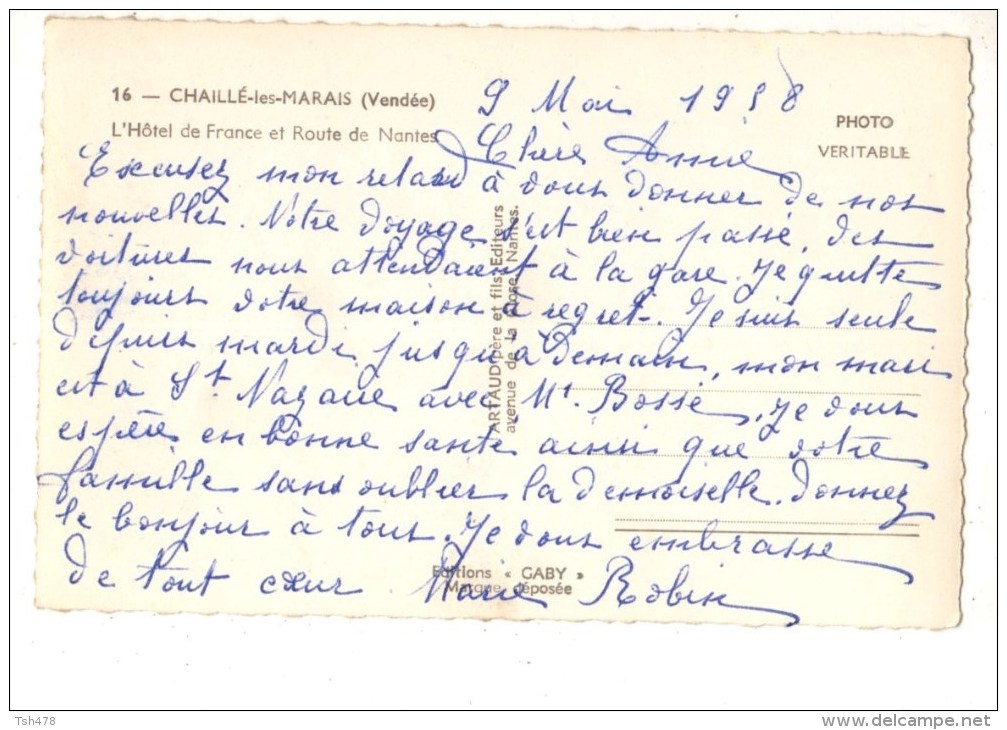 16 — CHAILLÉ-les-MARAIS (Vendée)
L'Hôtel de France et Route de Nantes
PHOTO
VERITABLE
9 Mai 1958
Chère Annie
Excusez mon retard à vous donner de nos
nouvelles. Notre voyage s'est bien passé, des
voitures nous attendaient à la gare. Je quitte
toujours votre maison à regret. Je suis seule
depuis mardi jusqu'à demain, mon mari
est à St Nazaire avec Mr. Bossé, Je vous
espère en bonne santé ainsi que votre
famille sans oublier la demoiselle. Donnez
le bonjour à tous. Je vous embrasse
de tout cœur Marie Robin
ARTAUD père et fils, Editeurs
avenue de la Close, Nantes.
Editions « GABY »
Marque déposée
Tsh478
www.delcampe.net